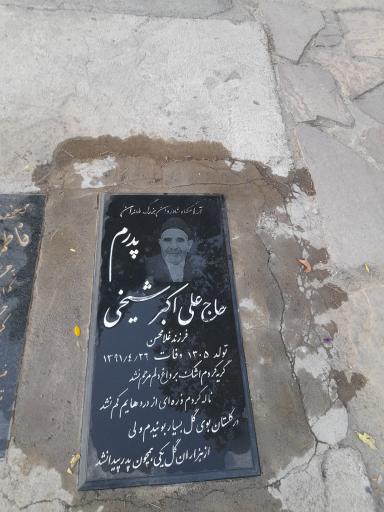 آرامگاه شادروان بزرگ خاندان
پدرم
حاج علی اکبر شیخی
فرزند غلامحسن
تولد ۱۳۰۵ وفات ۱۳۹۱/۴/۲۶
گریه کردم اشک بر داغ دلم مرهم نشد
ناله کردم ذره‌ای از دردهایم کم نشد
در گلستان بوی گل بسیار بوئیدم ولی
از هزاران گل یکی همچون پدر پیدا نشد
فاطمه